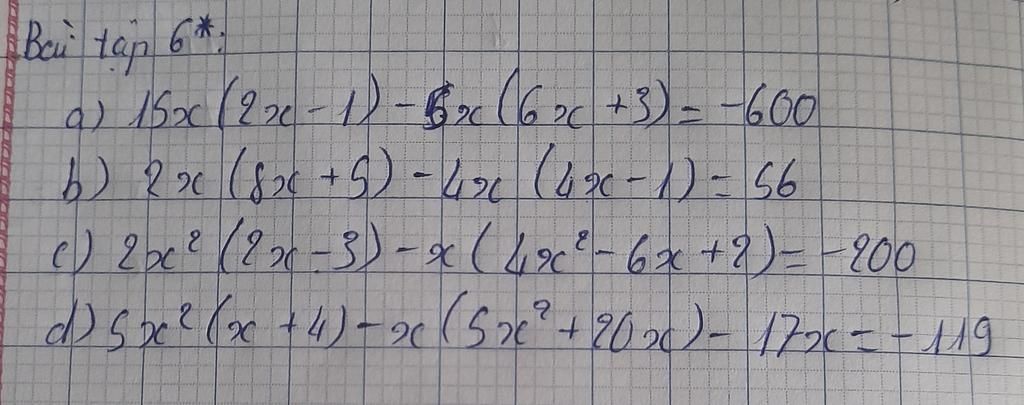 Bài tập 6*:
a) 15x(2x - 1) - 5x(6x + 3) = -600
b) 2x(8x + 5) - 4x(4x - 1) = 56
c) 2x²(2x - 3) - x(4x² - 6x + 2) = -200
d) 5x²(x + 4) - x(5x² + 20x) - 17x = -119